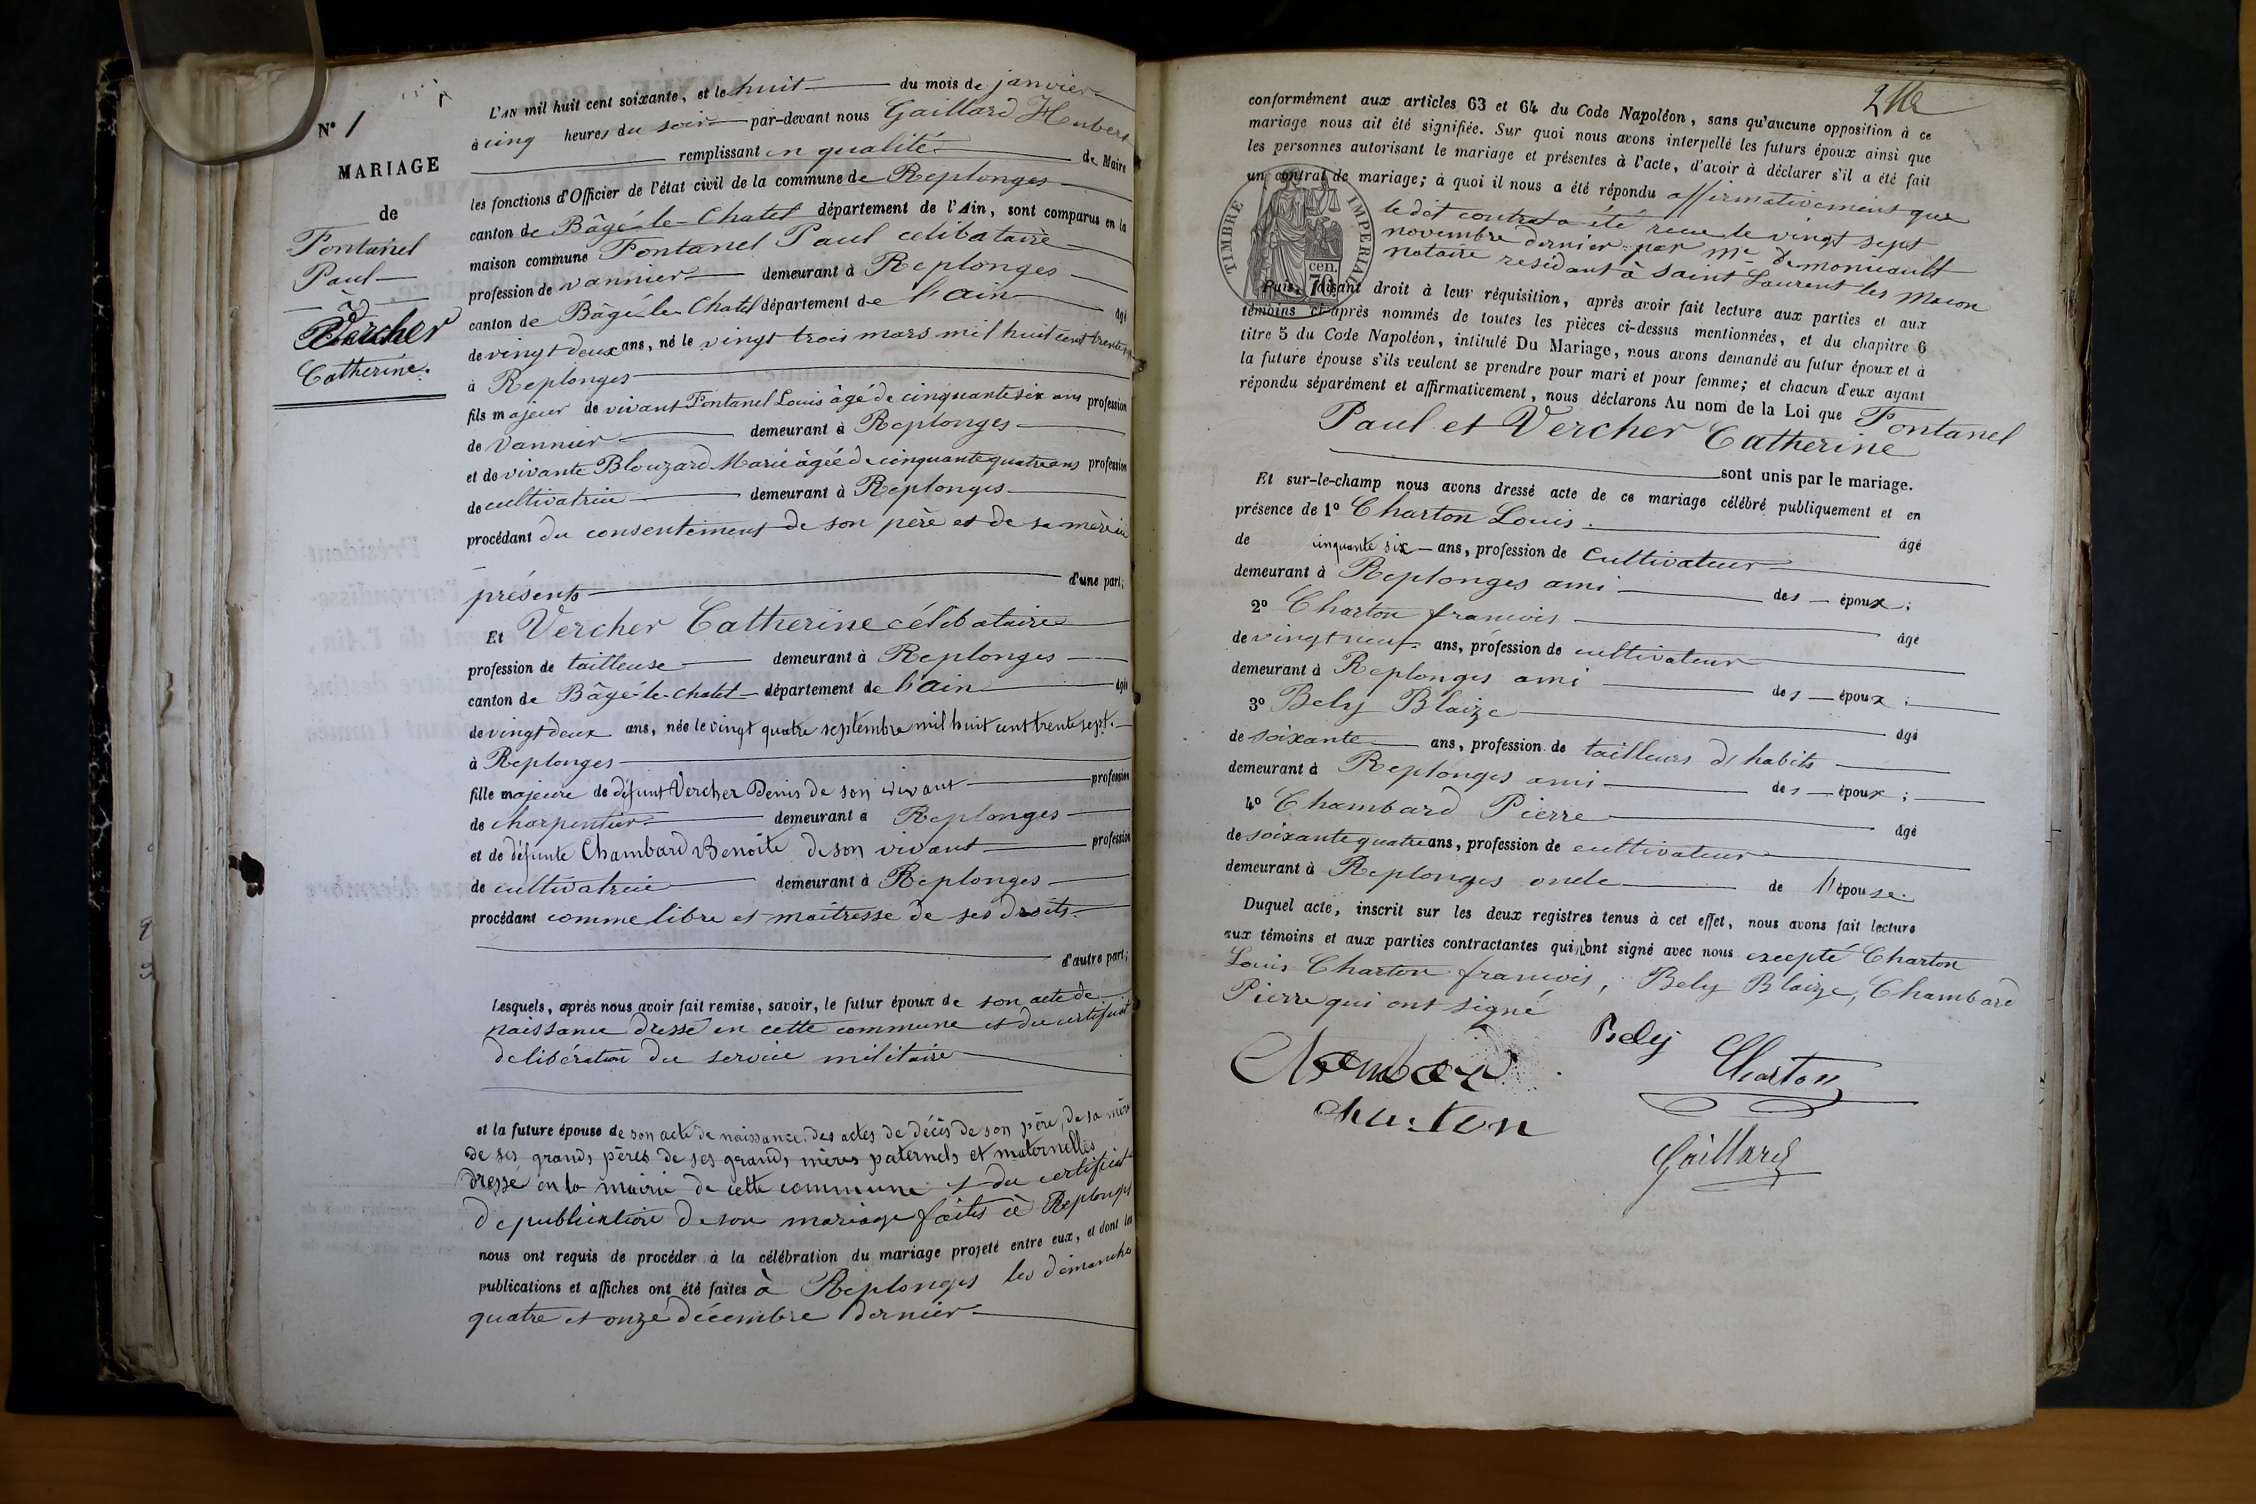 N° 1
MARIAGE
de
Fontanel
Paul
à
Vercher
Catherine.
L'AN mil huit cent soixante, et le huit du mois de janvier
à cinq heures du soir par-devant nous Gaillard Hubert
remplissant en qualité de Maire
les fonctions d'Officier de l'état civil de la commune de Replonges
canton de Bâgé-le-Chatel département de l'Ain, sont comparus en la
maison commune Fontanel Paul celibataire
profession de vannier demeurant à Replonges
canton de Bâgé-le-Chatel département de l'ain âgé
de vingt deux ans, né le vingt trois mars mil huit cent trente
à Replonges
fils majeur de vivant Fontanel Louis âgé de cinquante six ans profession
de Vannier demeurant à Replonges
et de vivante Blouzard Marie âgée de cinquante quatre ans profession
de cultivatrice demeurant à Replonges
procédant du consentement de son père et de sa mère ici
présents d'une part;
Et Vercher Catherine célibataire
profession de tailleuse demeurant à Replonges
canton de Bâgé-le-chatel département de l'ain âgée
de vingt deux ans, née le vingt quatre septembre mil huit cent trente sept.
à Replonges
fille majeure de défunt Vercher Denis de son vivant profession
de charpentier demeurant à Replonges
et de défunte Chambard Benoite de son vivant profession
de cultivatrice demeurant à Replonges
procédant comme libre et maîtresse de ses droits.
d'autre part;
Lesquels, après nous avoir fait remise, savoir, le futur époux de son acte de
naissance dressé en cette commune et du certificat
de libération du service militaire
et la future épouse de son acte de naissance, des actes de décès de son père, de sa mère
de ses grands pères de ses grands mères paternels et maternelles
dressé en la mairie de cette commune et du certificat
de publication de son mariage faites à Replonges
nous ont requis de procéder à la célébration du mariage projeté entre eux, et dont les
publications et affiches ont été faites à Replonges les dimanches
quatre et onze décembre dernier
conformément aux articles 63 et 64 du Code Napoléon, sans qu'aucune opposition à ce
mariage nous ait été signifiée. Sur quoi nous avons interpellé les futurs époux ainsi que
les personnes autorisant le mariage et présentes à l'acte, d'avoir à déclarer s'il a été fait
un contrat de mariage; à quoi il nous a été répondu affirmativement que
le dit contrat a été reçu le vingt sept
novembre dernier par Me
notaire residant à Saint Laurent les Macon
TIMBRE IMPERIAL
70 cen.
Puis, faisant droit à leur réquisition, après avoir fait lecture aux parties et aux
témoins ci-après nommés de toutes les pièces ci-dessus mentionnées, et du chapitre 6
titre 5 du Code Napoléon, intitulé Du Mariage, nous avons demandé au futur époux et à
la future épouse s'ils veulent se prendre pour mari et pour femme; et chacun d'eux ayant
répondu séparément et affirmativement, nous déclarons Au nom de la Loi que Fontanel
Paul et Vercher Catherine
sont unis par le mariage.
Et sur-le-champ nous avons dressé acte de ce mariage célébré publiquement et en
présence de 1° Charton Louis. âgé
de cinquante six ans, profession de cultivateur
demeurant à Replonges ami des époux;
2° Charton francois âgé
de vingt neuf ans, profession de cultivateur
demeurant à Replonges ami des époux;
3° Bely Blaize âgé
de soixante ans, profession de tailleurs d'habits
demeurant à Replonges ami des époux;
4° Chambard Pierre âgé
de soixante quatre ans, profession de cultivateur
demeurant à Replonges oncle de l'épouse.
Duquel acte, inscrit sur les deux registres tenus à cet effet, nous avons fait lecture
aux témoins et aux parties contractantes qui n'ont signé avec nous excepté Charton
Louis Charton francois, Bely Blaize, Chambard
Pierre qui ont signé
Bely
Chambard
Charton
charton
Gaillard